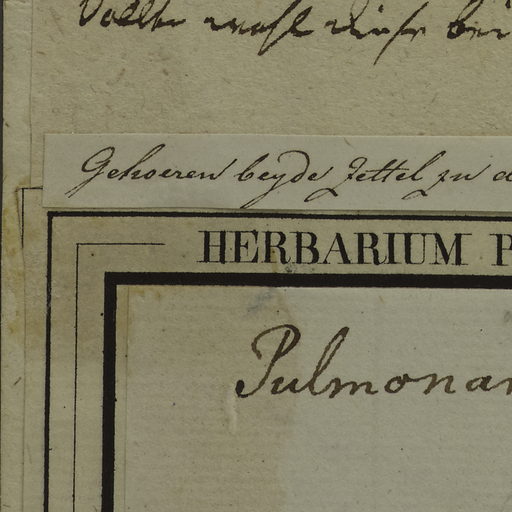 Sollte wohl diese bei
Gehoeren beyde Zettel zu d
HERBARIUM P
Pulmonar